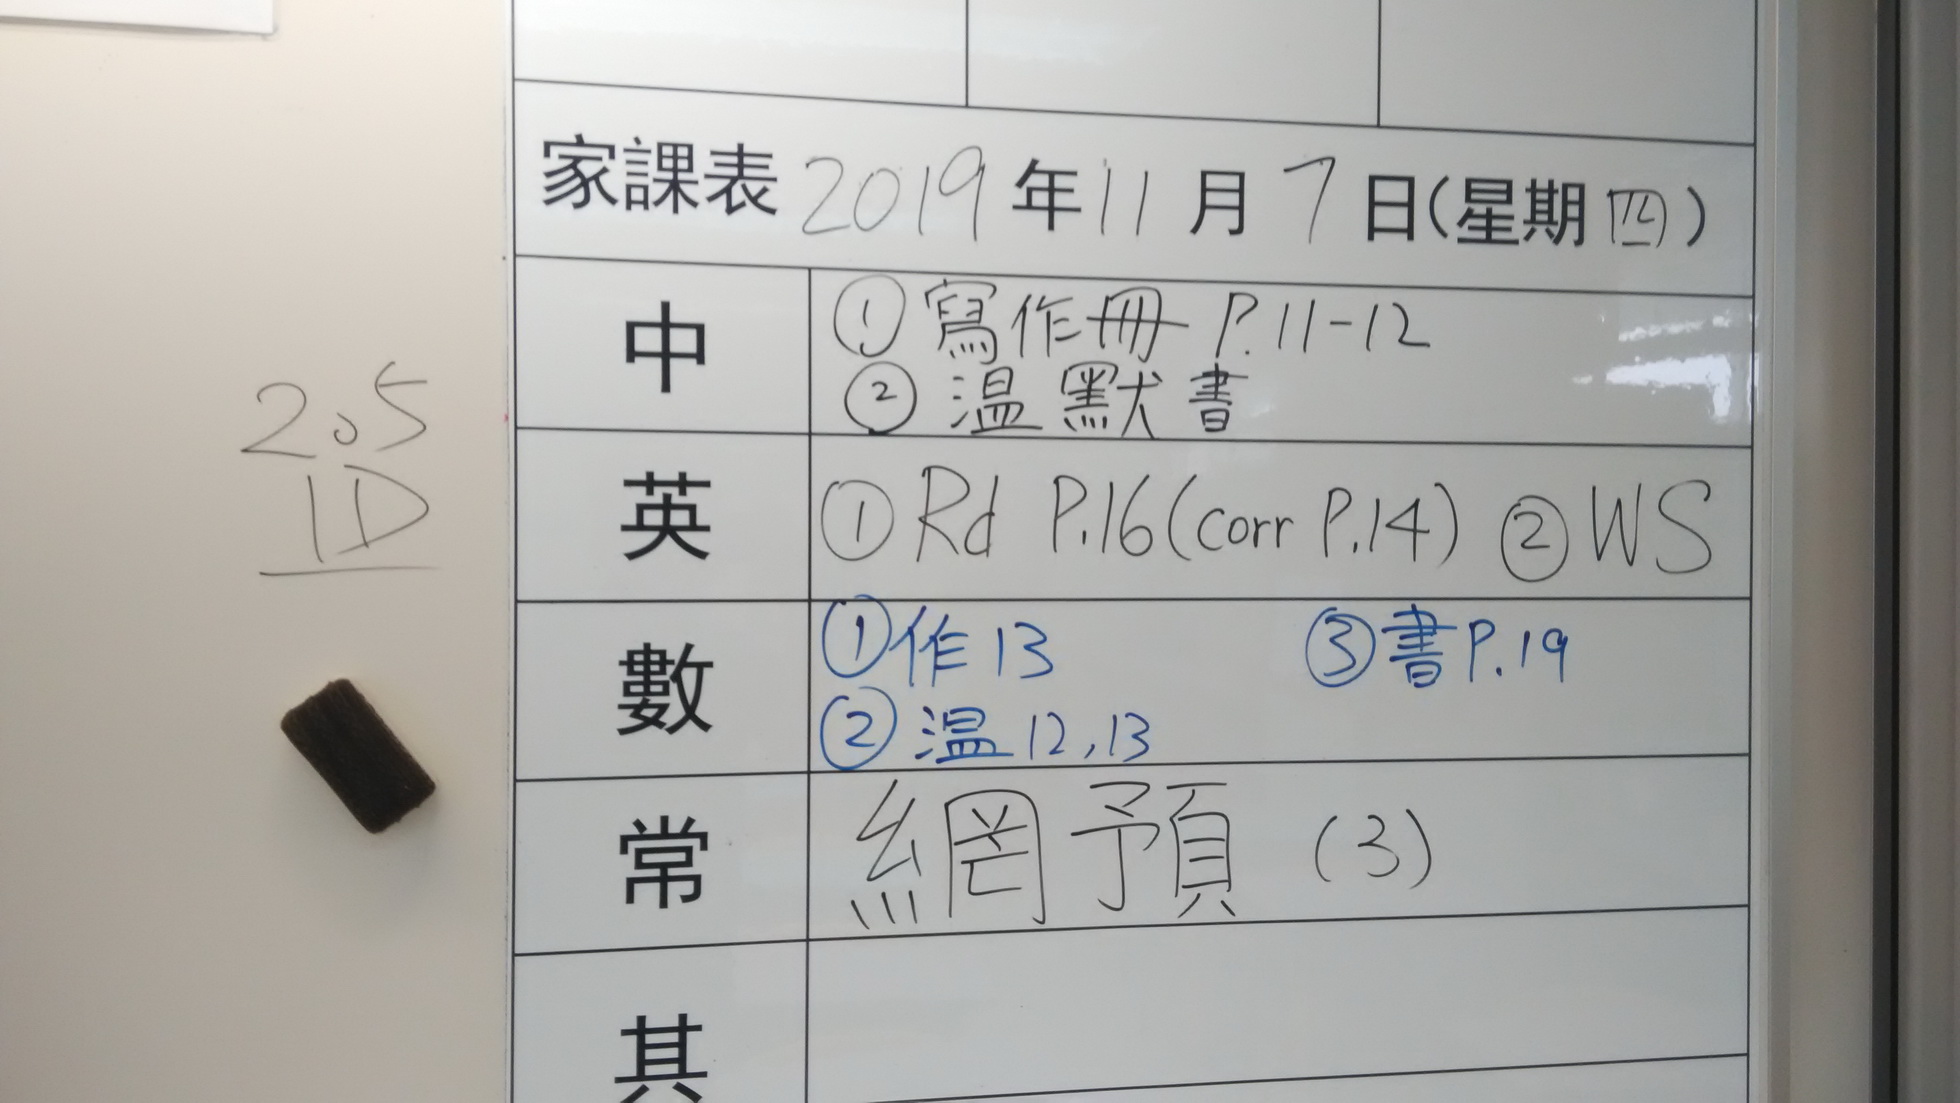 家課表 2019 年 11 月 7 日(星期 四)
中
① 寫作冊 P.11-12
② 温默書
英
① Rd P.16(corr P.14) ② WS
數
①作13 ③書P.19
②温12,13
常
網預 (3)
其
2.5
1D